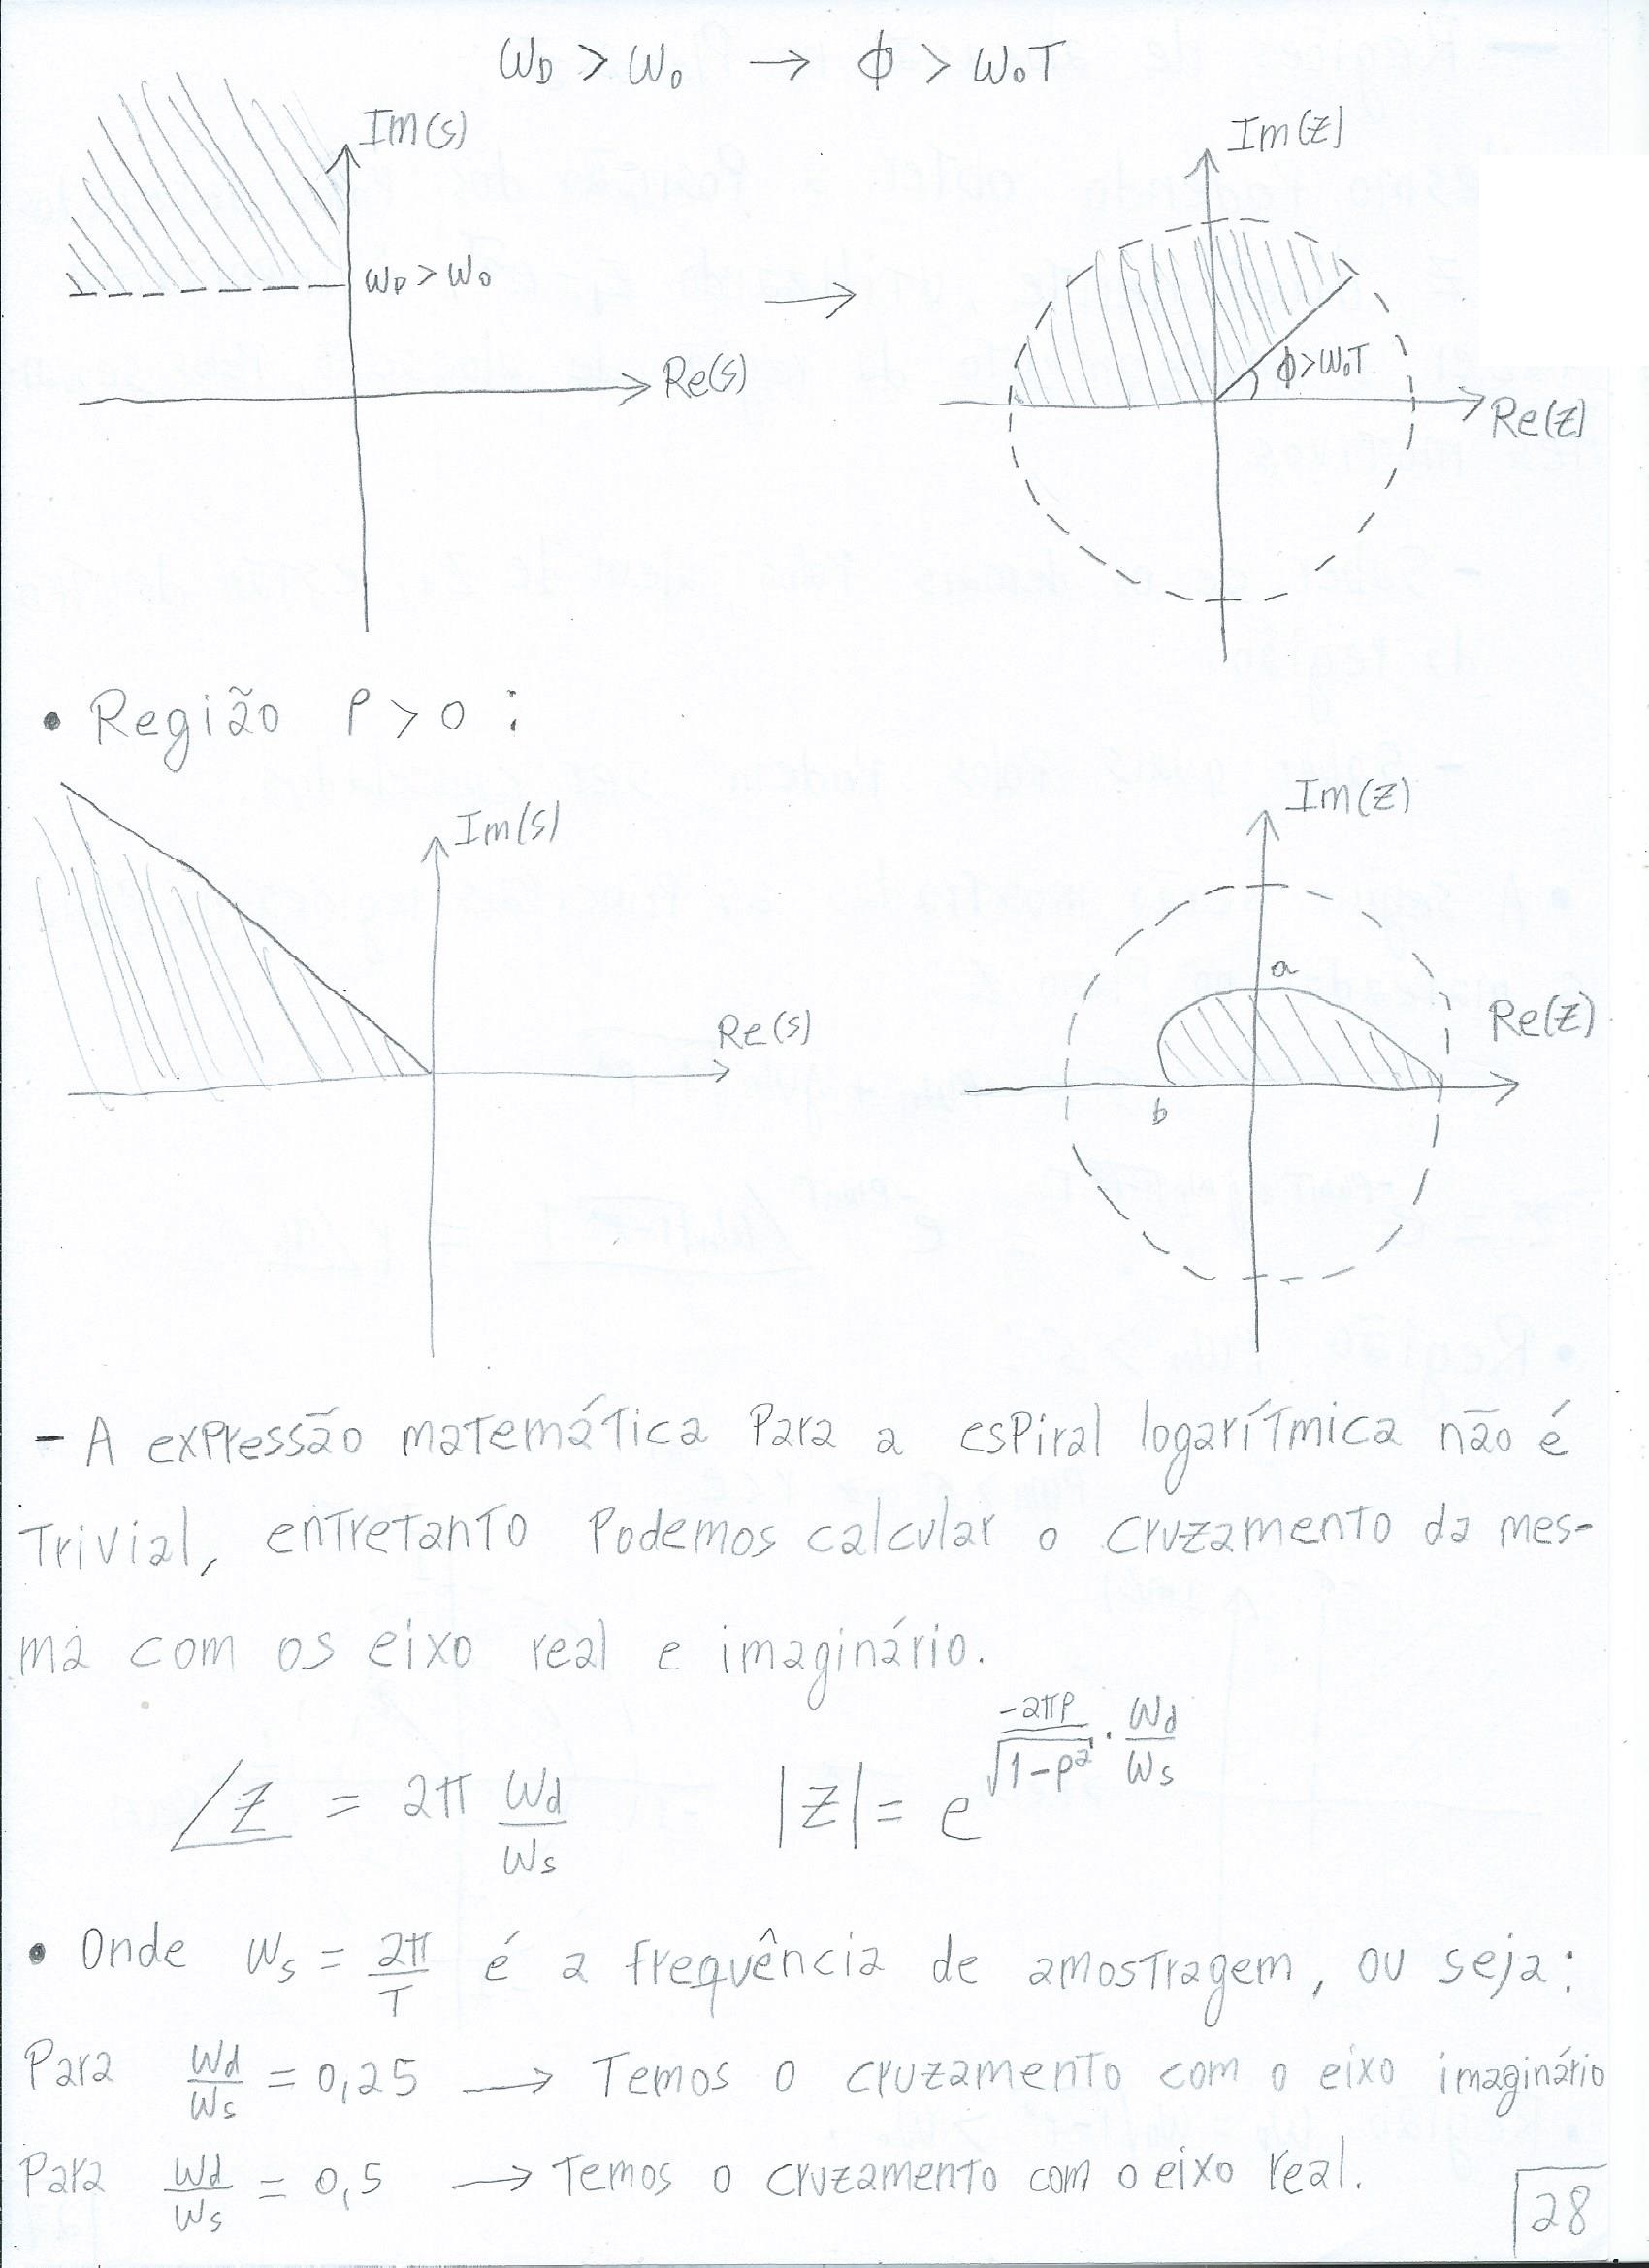 ω_D > ω_0 → ϕ > ω_0T
Im(s)
Im(z)
ω_D > ω_0
→
ϕ>ω_0T
Re(s)
Re(z)
• Região ρ > 0 :
Im(s)
Im(z)
a
Re(s)
Re(z)
b
- A expressão matemática para a espiral logarítmica não é
trivial, entretanto podemos calcular o cruzamento da mes-
ma com os eixo real e imaginário.
∠z = 2π ω_d/ω_s |z| = e^(-2πρ/√(1-ρ²) · ω_d/ω_s)
• Onde ω_s = 2π/T é a frequência de amostragem, ou seja:
Para ω_d/ω_s = 0,25 → Temos o cruzamento com o eixo imaginário
Para ω_d/ω_s = 0,5 → Temos o cruzamento com o eixo real.
28